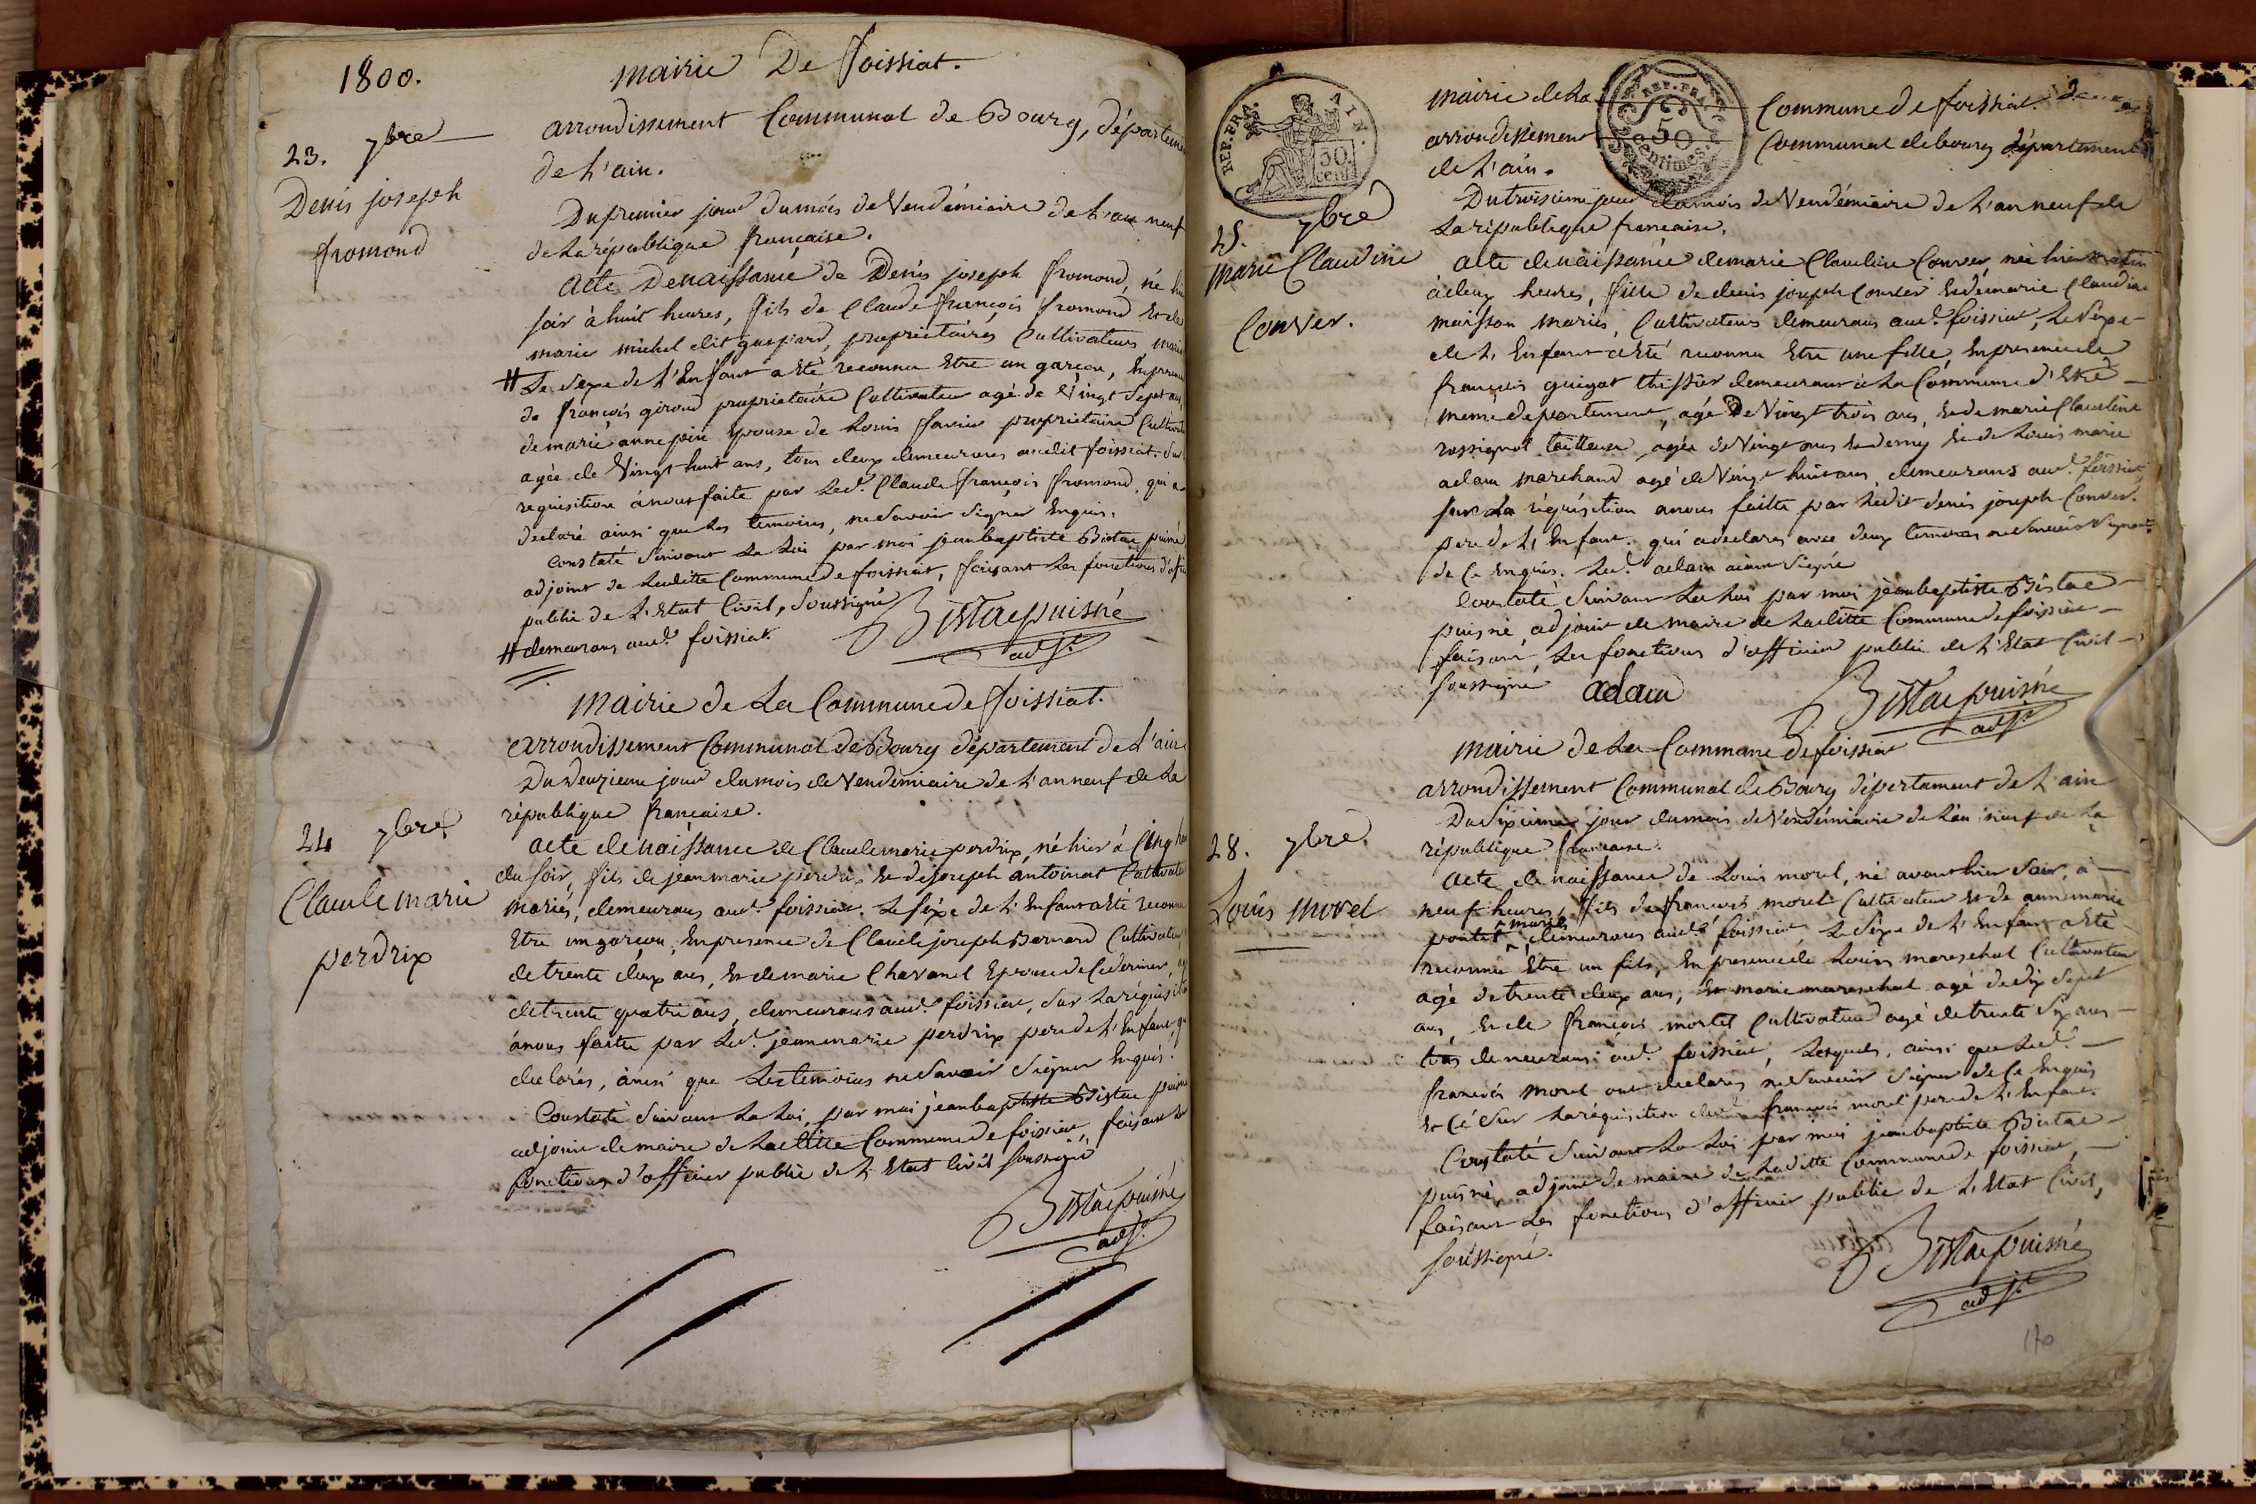 1800.
mairie De foissiat.
arrondissement Communal de Bourg, départeme
de L'ain.
23. 7bre
Denis joseph
fromond
Du premier jour du mois de Vendémiaire de L'an neuf
de La république française.
Acte De naissance de Denis joseph fromond, né hie
soir à huit heures, fils de Claude françois fromond et de
marie michel dit gaspard, propriétaires Cultivateurs mari
# Le sexe de L'Enfant a Eté reconnu Etre un garçon, En presen
de françois giroud propriétaire Cultivateur agé de Vingt Sept ans,
de marie anne épouse de Louis propriétaire Cultivat
agée de Vingt huit ans, tous deux demeurans audit foissiat. Sur
requisition à nous faite par Led. Claude françois fromond, qui a
declaré ainsi que Les temoins, ne Savoir Signer Enquis.
Constaté Suivant La Loi par moi jean baptiste Bistac puisné
adjoint de Laditte Commune de foissiat, faisant Les fonctions d'offi
public de L'Etat Civil, Soussigné
Bistac puisné
adj.t
# demeurans aud. foissiat.
Mairie de La Commune de foissiat.
Arrondissement Communal de Bourg département de L'ain
Du Deuxieme jour du mois de Vendémiaire de L'an neuf de La
république française.
24 7bre
Claude marie
perdrix
acte de naissance de Claude marie perdrix, né hier à Cinq heu
du soir, fils de jean marie perdrix et de joseph antoinat Cultivate
mariés, demeurans aud. foissiat. Le sexe de L'Enfant a Eté reconnu
Etre un garçon, En presence de Claude joseph Bernard Cultivateur
de trente deux ans, et de marie Chavanel Epouse de
de trente quatre ans, demeurans aud. foissiat, Sur La réquisit
à nous faitte par Led. jean marie perdrix pere de L'Enfant, q
declarés, ainsi que Les temoins ne Savoir Signer Enquis.
Constaté Suivant La Loi, par moi jean baptiste Bistac puisné
adjoint de maire de Laditte Commune de foissiat, faisant Les
fonctions d'officier public de L'Etat Civil Soussigné
Bistac puisné
adj.t
REP. FRA.
AIN.
50
cent.
REP. FRA.
50
Centimes.
mairie de La Commune de foissiat.
arrondissement Communal de bourg département
de L'ain.
25. 7bre
marie Claudine
Conver.
Du troisieme jour du mois de Vendémiaire de L'an neuf de
La république française.
Acte de naissance de marie Claudine Conver, née hier matin
à deux heures, fille de denis joseph Conver et de marie Claudine
maisson mariés, Cultivateurs demeurans aud. foissiat, Le Sexe
de L'Enfant a Eté reconnu Etre une fille, En presence de
françois guigat demeurant à La Commune d'Etré
meme departement, agé De Vingt trois ans, et de marie Claudine
rossignol tailleuse, agée de Vingt ans et demy et de Louis marie
adam marchand agé de Vingt huit ans, demeurans aud. foissiat,
sur La réquisition a nous faitte par Ledit denis joseph Conver
pere de L'Enfant. qui a declaré avec deux temoins ne Savoir Signer
de Ce Enquis. Led. adam aiant Signé
Constaté Suivant La Loi par moi jean baptiste Bistac
puisné, adjoint de maire de Laditte Commune de foissiat
faisant Les fonctions d'officier public de L'Etat Civil
soussigné adam
Bistac puisné
adj.t
mairie de La Commune de foissiat
arrondissement Communal de Bourg département de L'ain
28. 7bre.
Louis morel
Du Sixieme jour du mois de Vendémiaire de L'an neuf de La
république française.
Acte de naissance de Louis morel, né avant hier Soir, à
neuf heures, fils de françois morel Cultivateur et de anne marie
mariés
demeurans aud. foissiat Le Sexe de L'Enfant a Eté
reconnu Etre un fils, En presence de Louis mareschal Cultivateur
agé de trente deux ans, Et marie mareschal agé de dix Sept
ans et de françois mortel Cultivateur agé de trente Six ans
tous demeurans aud. foissiat, Lesquels, ainsi que Led.
francois morel ont declarés ne Savoir Signer de Ce Enquis
et Cé Sur La requisition dud. francois morel pere de L'Enfant.
Constaté Suivant La Loi par moi jean baptiste Bistac
puisné, adjoint de maire de Laditte Commune de foissiat,
faisant Les fonctions d'officier public de L'Etat Civil,
soussigné.
Bistac puisné
adj.t
170